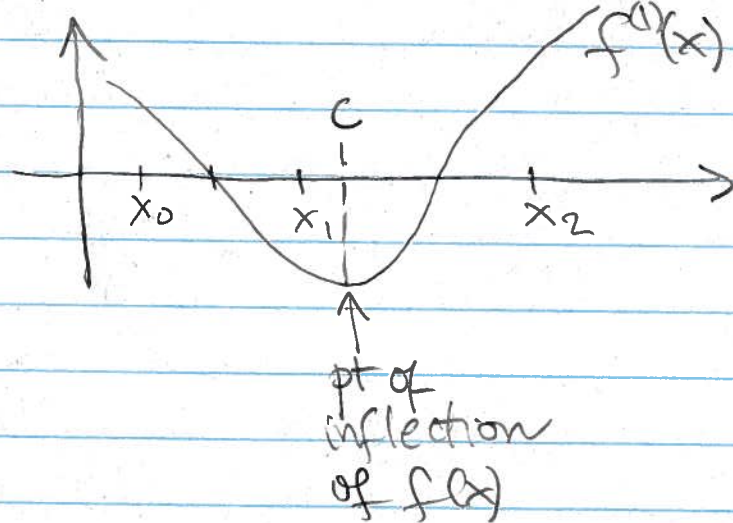 f⁽¹⁾(x)
C
x₀ x₁ x₂
pt of
inflection
of f(x)